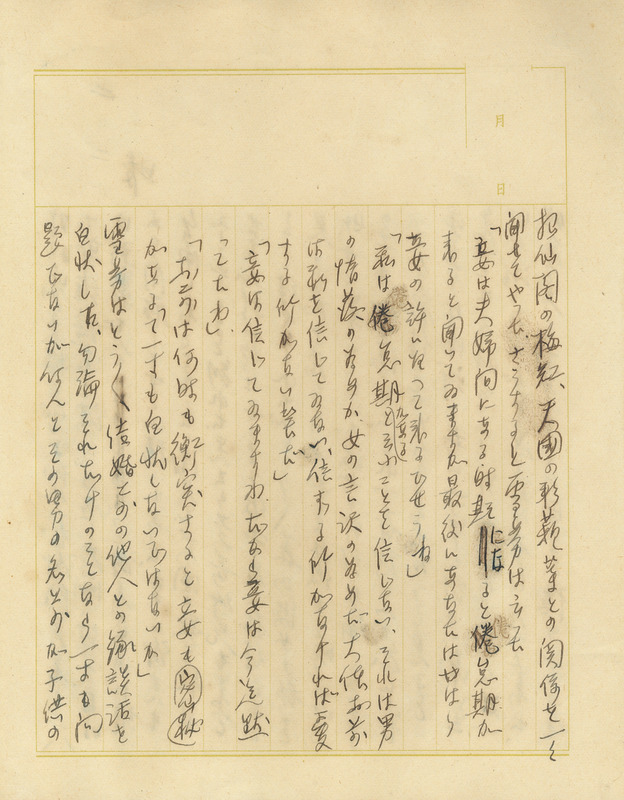 月
日
招仙閣の梅紅、天國の彩蘋 葉との関係を一々
聞せてやつた、さうすると雪芬は云つた
「妾は夫婦間にある時期になると倦怠期が
来ると聞いてゐますが最後にあなたはやはり
妾の許に帰つて来るでせうね」
「私は倦怠期なることを信じない、それは男
の情慾の為めか、女の言訳の為めだ、大体お前
は私を信じてゐない、信ずる所がなければ愛
する所がない筈だ」
「妾は信じてゐますわ、だから妾は今迄黙
つてたわ」
「お前は何時も
が
一寸も白状しないではないか」
雪芬はとう〳〵結婚前の他人との縁談話を
白状した、勿論それだけのことなら一寸も問
題でないが何んとその男の名前が子供の